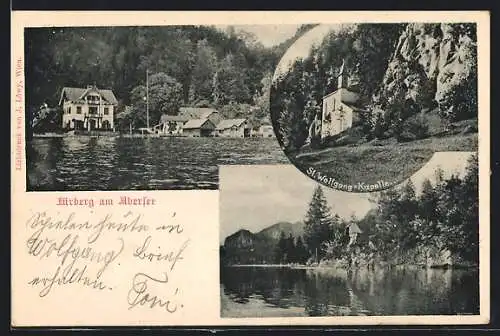 Lichtdruck von J. Löwy, Wien.
St. Wolfgang-Kapelle
Fürberg am Abersee
Spielen heute in
Wolfgang! Brief
erhalten. Toni.